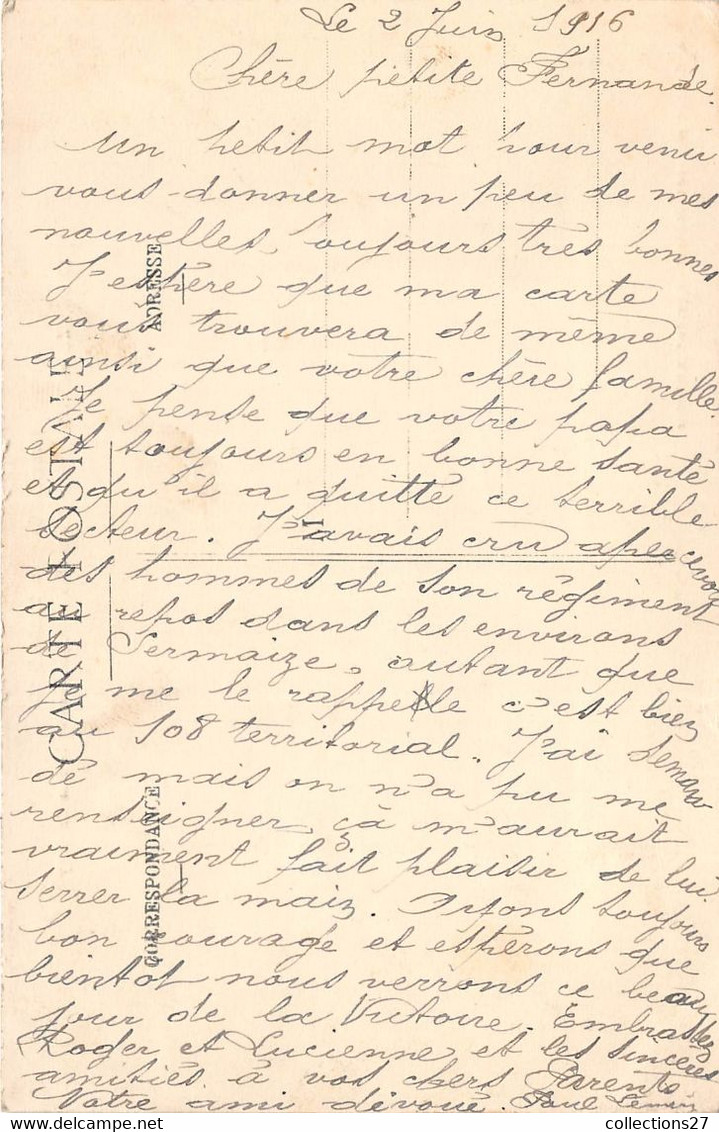 Le 2 Juin 1916
Chère petite Fernande.
Un petit mot pour venir
vous donner un peu de mes
nouvelles, toujours très bonnes
J'espère que ma carte
vous trouvera de même
ainsi que votre chère famille.
Je pense que votre papa
est toujours en bonne santé
et qu'il a quitté ce terrible
secteur. J'avais cru apercevoir
des hommes de son régiment
au repos dans les environs
de Sermaize, autant que
je me le rappelle c'est bien
au 108 territorial. J'ai deman
dé mais on n'a pu me
renseigner, çà m'aurait
vraiment fait plaisir de lui
serrer la main. Ayons toujours
bon courage et espérons que
bientot nous verrons ce beau
jour de la Victoire. Embrassez
Roger et Lucienne et les sincères
amitiés à vos chers Parents
Votre ami dévoué. Paul
CARTE POSTALE
CORRESPONDANCE
ADRESSE
www.delcampe.net
collections27